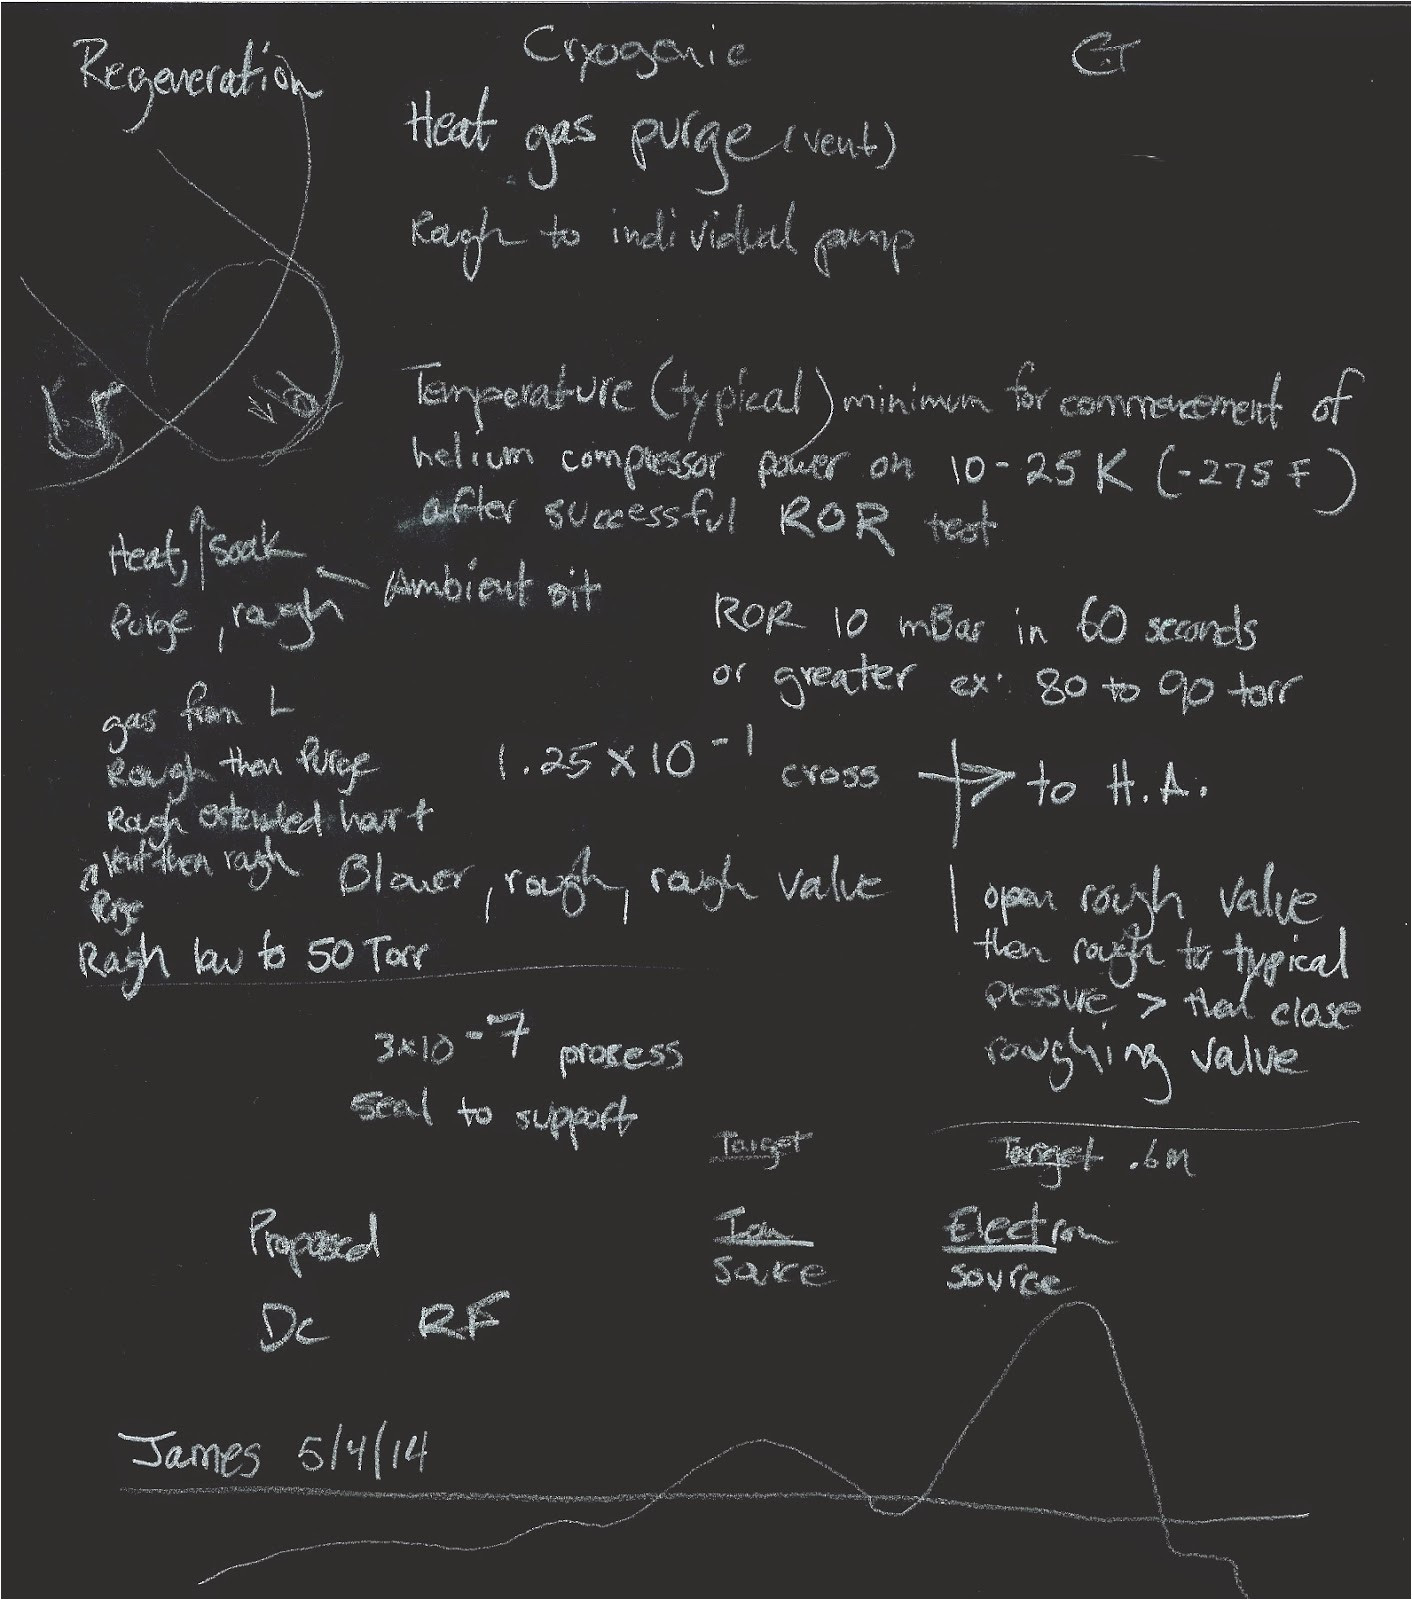 Regeneration
Cryogenic
CT
Heat gas purge (vent)
Rough to individual pump
Temperature (typical) minimum for commencement of
helium compressor power on 10-25 K (-275 F)
after successful ROR test
Heat, soak
Purge, rough
Ambient sit
ROR 10 mBar in 60 seconds
or greater ex: 80 to 90 torr
gas from L
Rough then Purge
Rough extended hour +
Vent then rough
Purge
Rough low to 50 Torr
1.25 x 10 -1 cross to H.A.
Blower, rough, rough valve
open rough valve
then rough to typical
pressure > then close
roughing valve
3x10 -7 process
seal to support
Target
Target .6m
Proposed
Ion
Source
Electron
source
DC RF
James 5/4/14